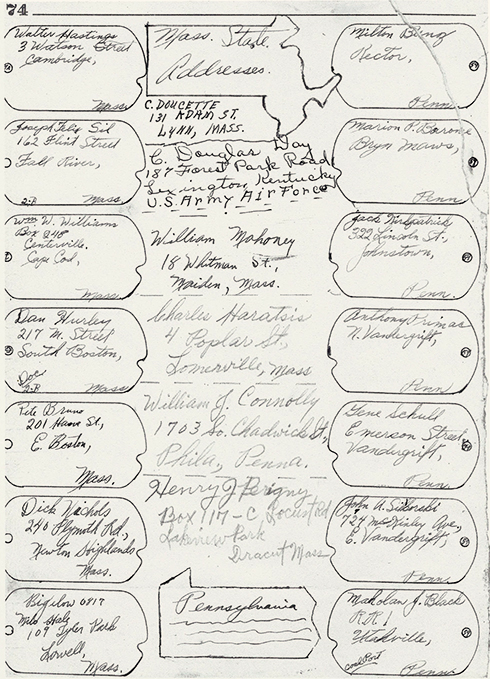 74
Walter Hastings
3 Watson Street
Cambridge,
Mass.
Joseph Felix Sil
162 Flint Street
Fall River,
2-R Mass.
Wm W. Williams
Box 248
Centerville.
Cape Cod,
Mass.
Dan Hurley
217 M. Street
South Boston,
Doc
2-R Mass.
Pete Bruno
201 Havre St,
E. Boston,
Mass.
Dick Nichols
240 Plymoth Rd,
Newton Highlands
Mass.
Bigelow 0417
Hale
109 Tyler Park
Lowell,
Mass.
Mass. State.
Addresses.
C. DOUCETTE
131 ADAM ST.
LYNN, MASS.
C. Douglas Day
187 Forest Park Road
Lexington, Kentucky
U.S. Army Air Force
William Mahoney
18 Whitman St.,
Malden, Mass.
Charles Haratsis
4 Poplar St,
Somerville, Mass
William J. Connolly
1703 So. Chadwick St,
Phila, Penna.
Henry J Perigny
Box 117-C Locust Rd
Lakeview Park
Dracut Mass
Pennsylvania
Milton
Rector,
Penn.
Marion P. Barone
Bryn Mawr,
Penn
Jack Kirkpatrick
322 Lincoln St,
Johnstown,
Penn.
Anthony Primas
N. Vandergrift,
Penn
Gene Schull
Emerson Street
Vandergrift,
Penn.
John A. Sikorski
724 McKinley Ave,
E. Vandergrift,
Penn
J. Black
R.R. 1
Utahville,
Coalport Penn